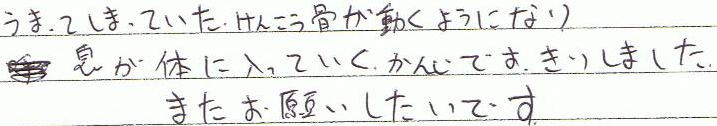 うまってしまっていた.けんこう骨が動くようになり
息が体に入っていく.かんじです.きりしました.
またお願いしたいです